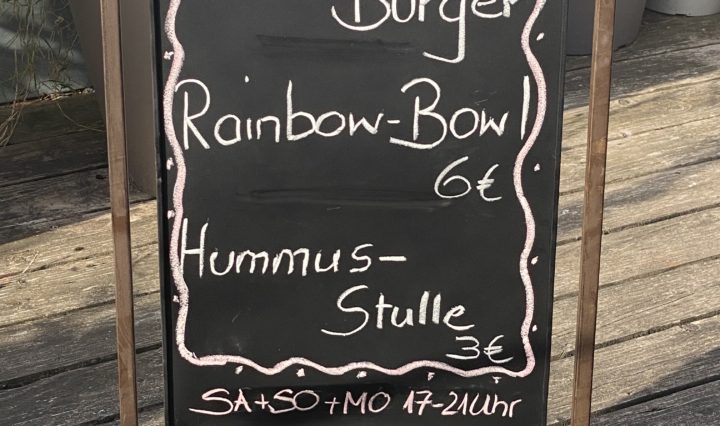 Burger
Rainbow-Bowl
6€
Hummus-
Stulle
3€
SA+SO+MO 17-21Uhr